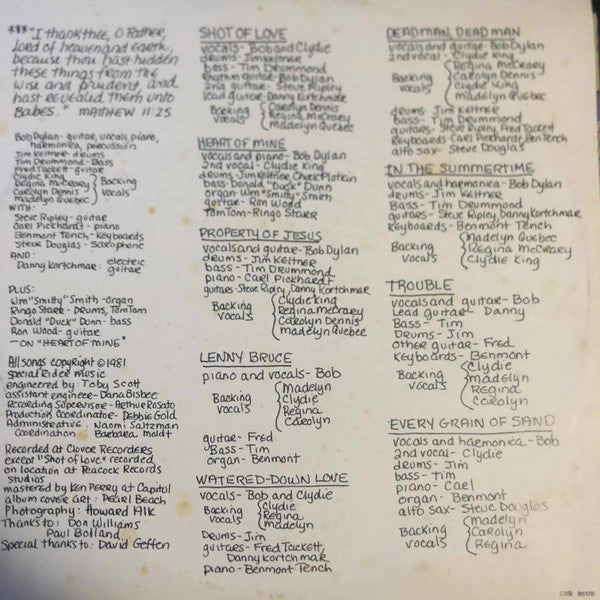 $$$ "I thank thee, O Father,
Lord of heaven and Earth,
because thou hast hidden
these things from the
wise and prudent, and
hast revealed them unto
Babes." MATHEW 11:25
Bob Dylan- guitar, vocals, piano,
harmonica, percussion
Jim Keltner- drums
Tim Drummond- Bass
Fred Tackett- guitar
Clydie King
Regina McCreary
Carolyn Dennis
madelyn Quebec
Backing
vocals
WITH:
Steve Ripley- guitar
Cael Pickhardt- piano
Benmont Tench- Keyboards
Steve Douglas- Saxophone
AND:
Danny Kortchmar- electric
guitar
PLUS:
Wm "Smitty" Smith- Organ
Ringo Starr- Drums, TomTom
Donald "Duck" Dunn- bass
Ron Wood- guitar
—ON "HEART OF MINE"
All songs copyright © 1981
Special Rider music
engineered by: Toby Scott
assistant engineer- Dana Bisbee
Recording Supervisor- Arthur Rosato
Production Coordinator- Debbie Gold
Administrative: Naomi Saltzman
Coordination Barbara Moldt
Recorded at Clover Recorders
except "Shot of Love" recorded
on location at Peacock Records
studios
mastered by Ken Perry at Capitol
album cover art: Pearl Beach
Photography: Howard Alk
Thanks to: Don Williams
Paul Bolland
Special thanks to: David Geffen
SHOT OF LOVE
vocals- Bob and Clydie
drums- Jim Keltner
bass- Tim Drummond
rhythm guitar- Bob Dylan
2nd guitar- Steve Ripley
lead guitar- Danny Kortchmar
Backing
vocals
Carolyn Dennis
Regina McCrary
madelyn Quebec
HEART OF MINE
vocals and piano- Bob Dylan
2nd vocal- Clydie King
drums- Jim Keltner, Chuck Plotkin
bass- Donald "Duck" Dunn
organ- Wm "Smitty" Smith
guitar- Ron Wood
TomTom- Ringo Starr
PROPERTY OF JESUS
vocals and guitar- Bob Dylan
drums- Jim Keltner
bass- Tim Drummond
piano- Cael Pickhardt
guitars- Steve Ripley, Danny Kortchmar
Backing
vocals
Clydie King
Regina McCreary
Carolyn Dennis
madelyn Quebec
LENNY BRUCE
piano and vocals- Bob
Backing
vocals
Madelyn
Clydie
Regina
Carolyn
guitar- Fred
Bass- Tim
organ- Benmont
WATERED-DOWN LOVE
vocals- Bob and Clydie
Backing
vocals
Clydie
Regina
madelyn
Drums- Jim
guitars- Fred Tackett,
Danny Kortchmar
piano- Benmont Tench
DEAD MAN, DEAD MAN
vocals and guitar- Bob Dylan
2nd vocal- Clydie King
Backing
vocals
Regina McCreary
Carolyn Dennis
Clydie King
madelyn Quebec
drums- Jim Keltner
bass- Tim Drummond
guitars- Steve Ripley, Fred Tackett
Keyboards- Cael Pickhardt, Ben Tench
alto sax- Steve Douglas
IN THE SUMMERTIME
vocals and harmonica- Bob Dylan
drums- Jim Keltner
Bass- Tim Drummond
guitars- Steve Ripley, Danny Kortchmar
Keyboards- Benmont Tench
Backing
vocals
Madelyn Quebec
Regina McCreary
Clydie King
TROUBLE
vocals and guitar- Bob
Lead guitar- Danny
Bass- Tim
Drums- Jim
other guitar- Fred
Keyboards- Benmont
Backing
vocals
Clydie
madelyn
REgina
Carolyn
EVERY GRAIN OF SAND
vocals and harmonica- Bob
2nd vocal- Clydie
drums- Jim
bass- tim
piano- Cael
organ- Benmont
alto sax- Steve Douglas
Backing
vocals
madelyn
Carolyn
Regina
CBS 85178